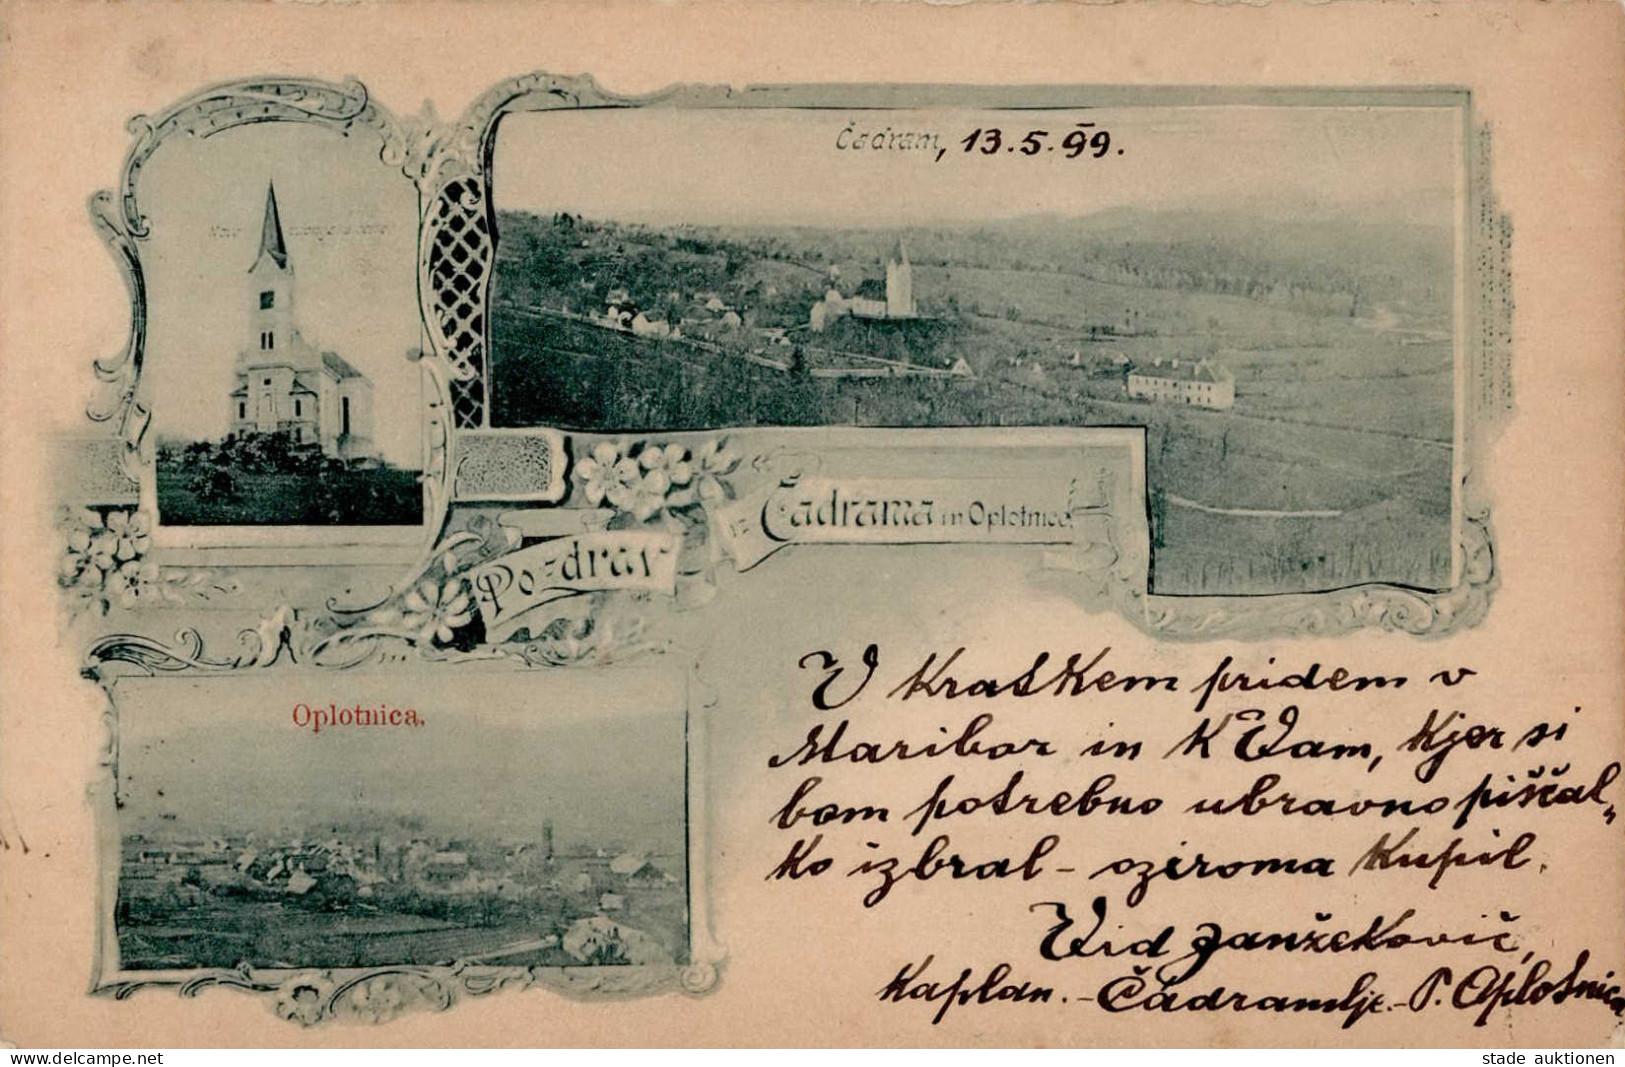 Čadram, 13.5.99.
Pozdrav iz Čadrama in Oplotnice.
Oplotnica.
V Kratkem pridem v
Maribor in K Vam, Kjer si
bom potrebno ubravno piščal„
Ko izbral - oziroma Kupil.
Vid Janžekovič,
Kaplan. - Čadramlje. - P. Oplotnica
www.delcampe.net
stade auktionen